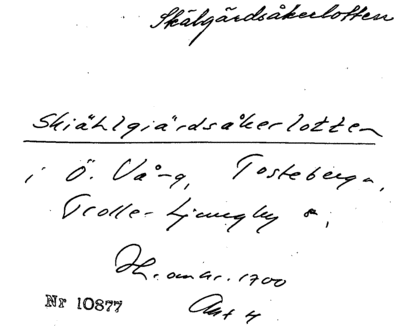 Skälgärdsåkerlotten
Skiählgiärdsåkerlotten
i Ö. Vång, Tosteberga,
Trolle-Ljungby s:,
H. omkr. 1700
Nr 10877 Akt 4